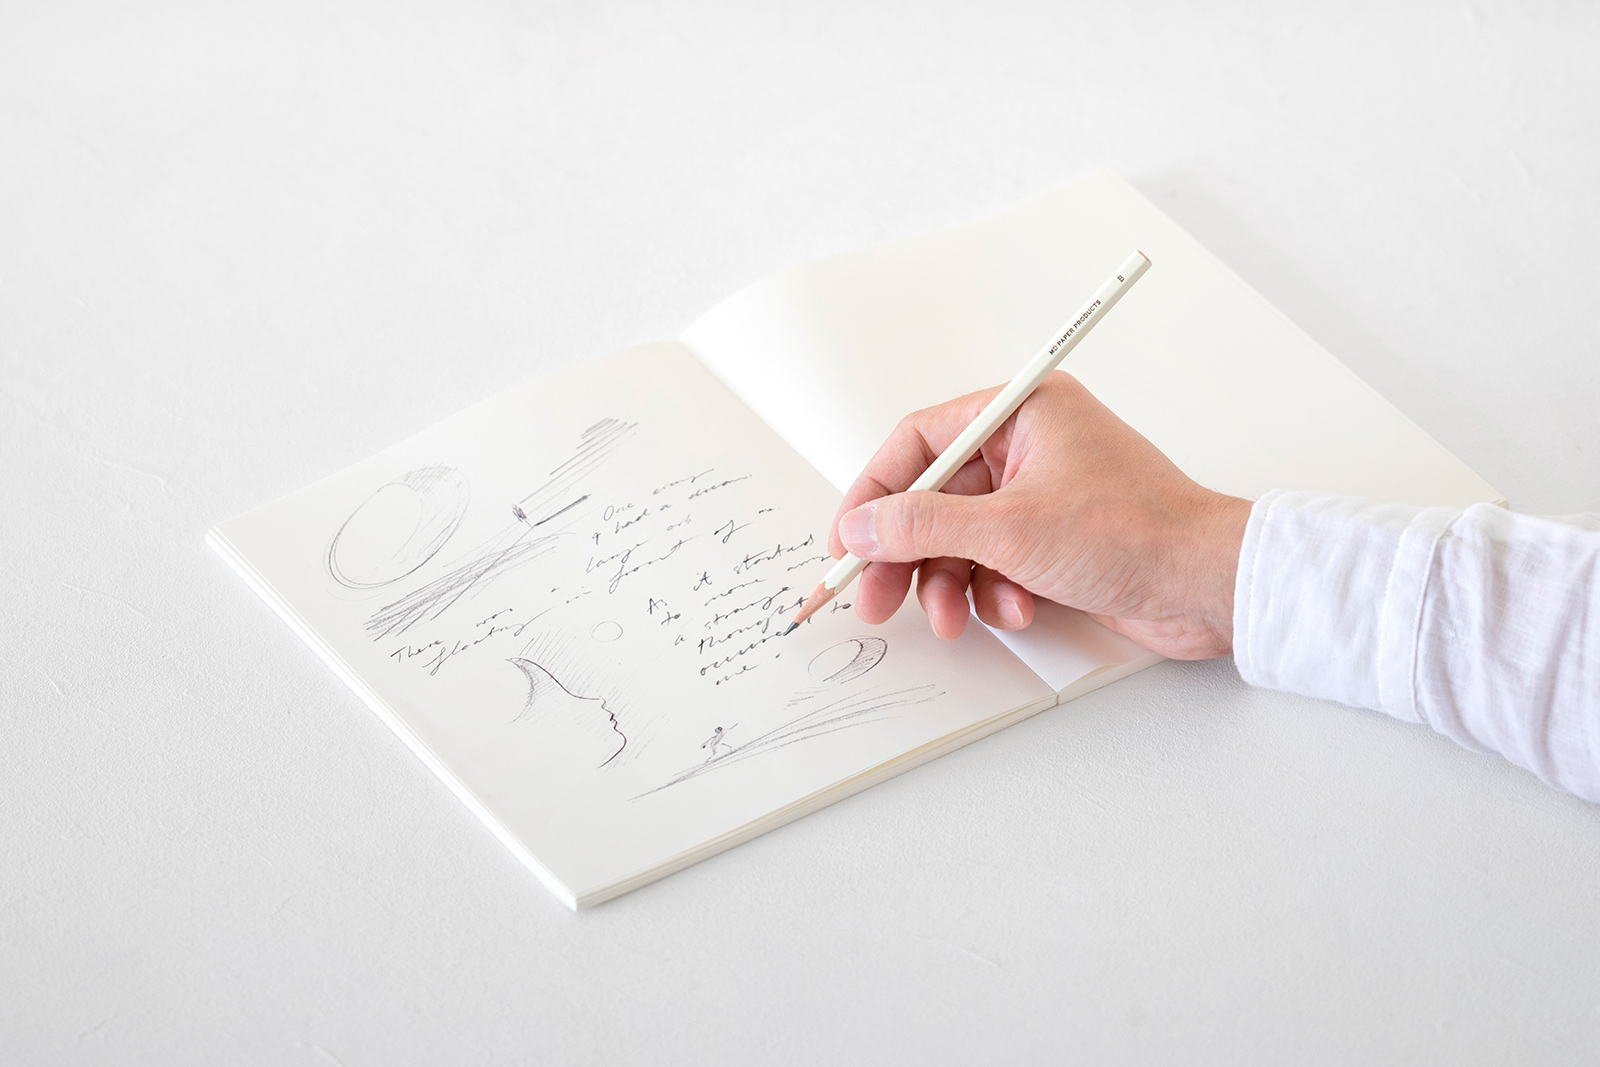 One
I had a dream.
There was a large orb
floating in front of me.
As it started
to move away
a strange
thought
occurred to
me.
MD PAPER PRODUCTS
B